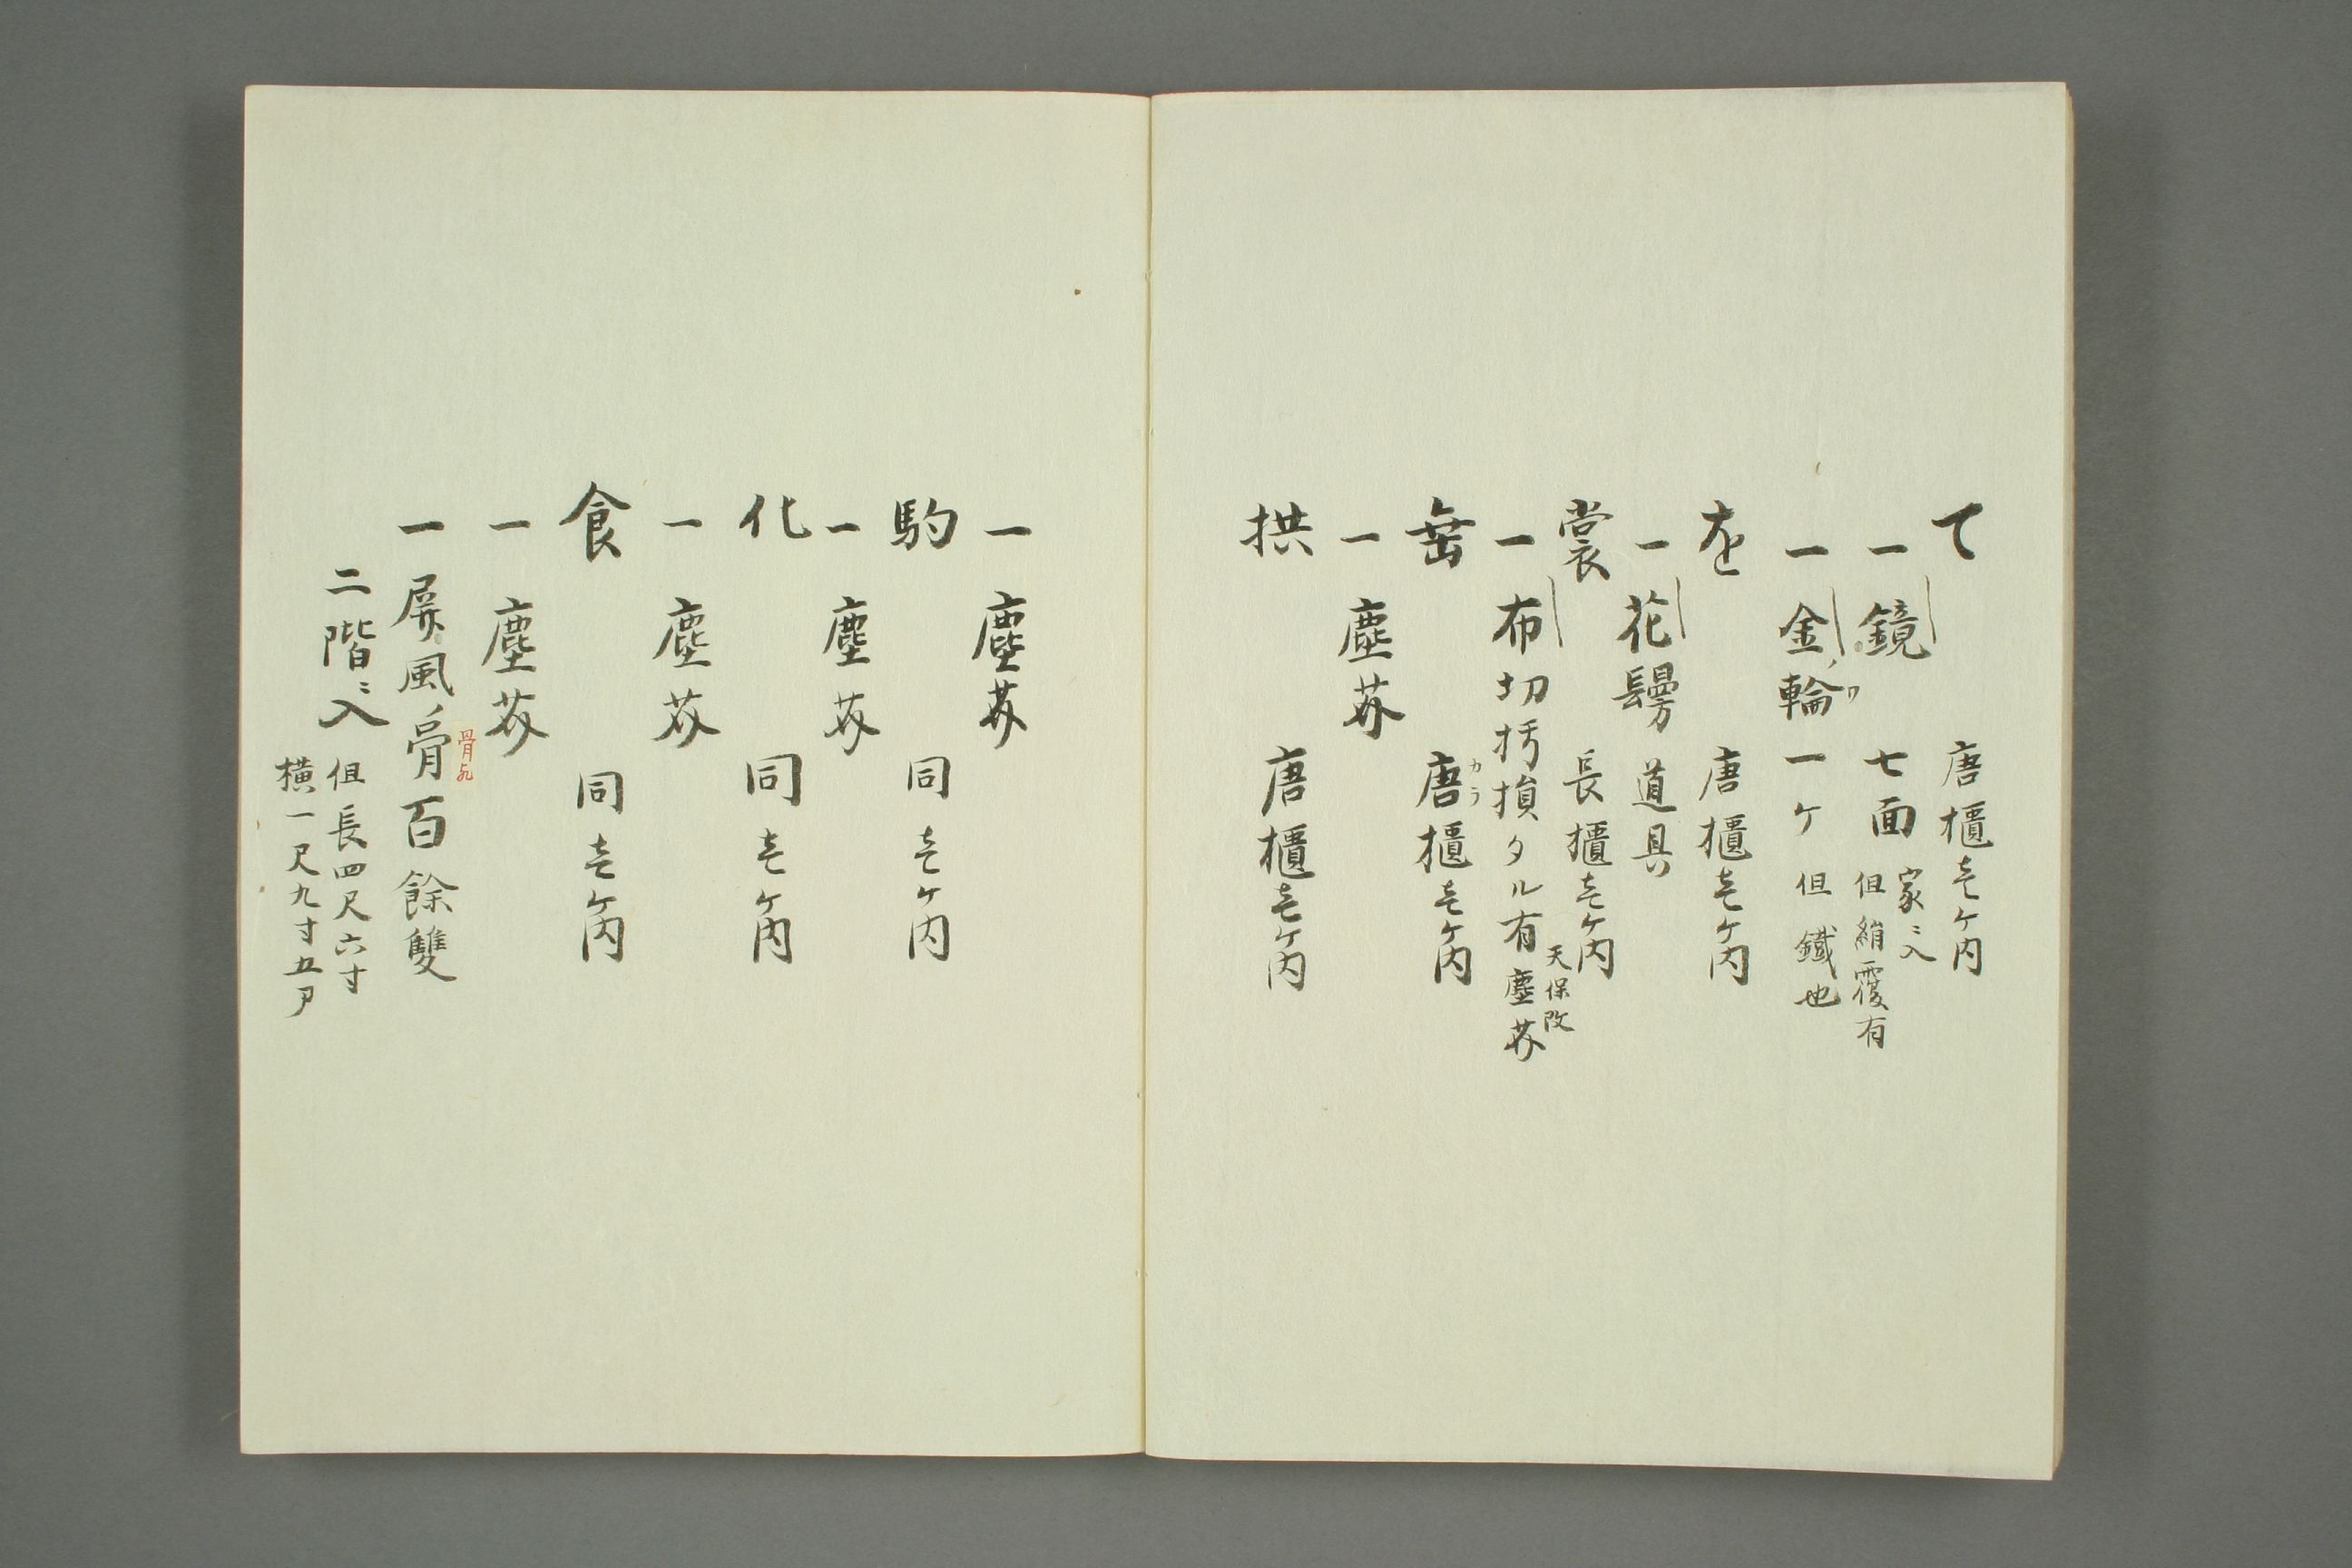 て　唐櫃壱ケ内
一鏡　七面　家ニ入
但絹覆有
一金輪　一ケ　但鐵也
ノワ
を　唐櫃壱ケ内
一花鬘　道具
裳　長櫃壱ケ内
一布切朽損タル有塵芥
天保改
垂　唐櫃壱ケ内
カラ
一塵芥
拱　唐櫃壱ケ内
一塵芥
駒　同壱ケ内
一塵芥
化　同壱ケ内
一塵芥
食　同壱ケ内
一塵芥
一屏風骨百餘雙
骨
二階ニ入　但長四尺六寸
横一尺九寸五歩